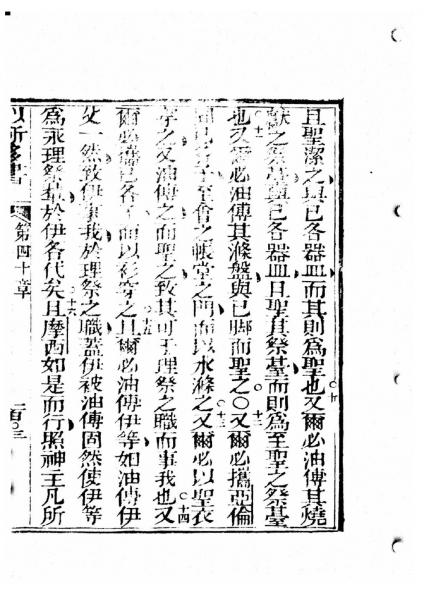 且聖潔之與已各器皿而其則爲聖也○十又爾必油傅其燒
獻之祭臺與已各器皿且聖其祭臺而則爲至聖之祭臺
也○十一又爾必油傅其滌盤與已脚而聖之○○十二又爾必攜亞倫
同已各子至會之帳堂之門而以水滌之○十三又爾必以聖衣
穿之又油傅之而聖之致其可于理祭之職而事我也○十四又
爾必攜已各子而以衫穿之○十五且爾必油傅伊等如油傅伊
父一然致伊事我於理祭之職蓋伊被油傅固然使伊等
爲永理祭輩於伊各代矣○十六且摩西如是而行照神王凡所
以所多書 第四十章 一百○三